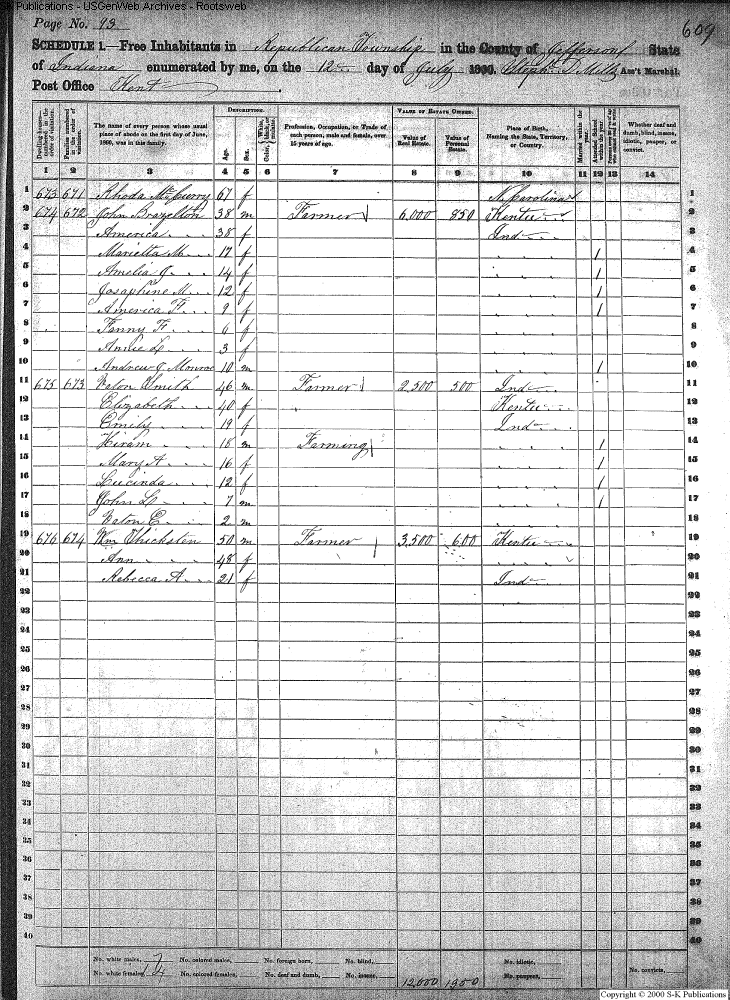 S-K Publications - USGenWeb Archives - Rootsweb
Page No. 93
609
SCHEDULE 1.—Free Inhabitants in Republican Township in the County of Jefferson State
of Indiana enumerated by me, on the 12 day of July 1860. Steph. D. Mills Ass't Marshal.
Post Office Kent
Dwelling-houses—numbered in the order of visitation.
Families numbered in the order of visitation.
The name of every person whose usual place of abode on the first day of June, 1860, was in this family.
DESCRIPTION.
Age.
Sex.
Color, White, black, or mulatto.
Profession, Occupation, or Trade of each person, male and female, over 15 years of age.
VALUE OF ESTATE OWNED.
Value of Real Estate.
Value of Personal Estate.
Place of Birth, Naming the State, Territory, or Country.
Married within the year.
Attended School within the year.
Whether deaf and dumb, blind, insane, idiotic, pauper, or convict.
1 2 3 4 5 6 7 8 9 10 11 12 13 14
1 673 671 Rhoda McCurry 67 f N. Carolina 1
2 674 672 John Brazelton 38 m Farmer 6,000 850 Kentu 2
3 America 38 f Ind 3
4 Marietta M. 17 f / 4
5 Amelia J. 14 f / 5
6 Josaphine M. 12 f / 6
7 America F. 9 f / 7
8 Fanny F. 6 f 8
9 Annie L. 3 f 9
10 Andrew J. Monroe 10 m / 10
11 675 673 Eaton Smith 46 m Farmer 2,500 500 Ind 11
12 Elizabeth 40 f Kentu 12
13 Emily 19 f Ind 13
14 Hiram 18 m Farming / 14
15 Mary A. 16 f / 15
16 Lucinda 12 f / 16
17 John L. 7 m / 17
18 Eaton E. 2 m 18
19 676 674 Wm Thicksten 50 m Farmer 3,500 600 Kentu 19
20 Ann 48 f 20
21 Rebecca A. 21 f Ind 21
22 22
23 23
24 24
25 25
26 26
27 27
28 28
29 29
30 30
31 31
32 32
33 33
34 34
35 35
36 36
37 37
38 38
39 39
40 40
No. white males, 7 No. colored males, No. foreign born, No. blind, No. idiotic,
No. white females, 14 No. colored females, No. deaf and dumb, No. insane, 12,000 1950 No. paupers, No. convicts,
Copyright © 2000 S-K Publications